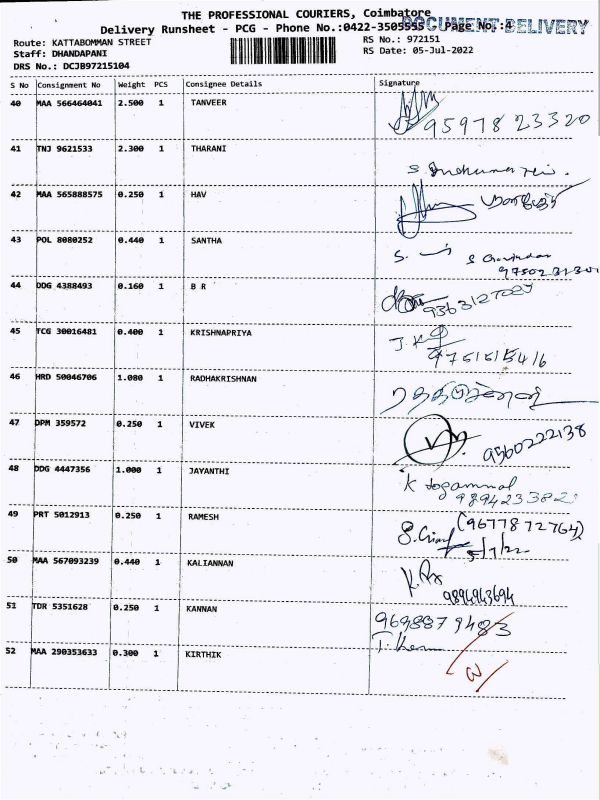 THE PROFESSIONAL COURIERS, Coimbatore
Delivery Runsheet - PCG - Phone No.:0422-3505555 Page No.:4
DOCUMENT DELIVERY
Route: KATTABOMMAN STREET
RS No.: 972151
Staff: DHANDAPANI
RS Date: 05-Jul-2022
DRS No.: DCJB97215104
S No Consignment No Weight PCS Consignee Details Signature
40 MAA 566464041 2.500 1 TANVEER
9597823320
41 TNJ 9621533 2.300 1 THARANI
42 MAA 565888575 0.250 1 HAV
43 POL 8080252 0.440 1 SANTHA
44 DDG 4388493 0.160 1 B R
45 TCG 30016481 0.400 1 KRISHNAPRIYA
46 HRD 50046706 1.080 1 RADHAKRISHNAN
47 DPM 359572 0.250 1 VIVEK
9560222138
48 DDG 4447356 1.000 1 JAYANTHI
49 PRT 5012913 0.250 1 RAMESH
(9677872764)
5/7/22
50 MAA 567093239 0.440 1 KALIANNAN
9894943694
51 TDR 5351628 0.250 1 KANNAN
9698879483
52 MAA 290353633 0.300 1 KIRTHIK